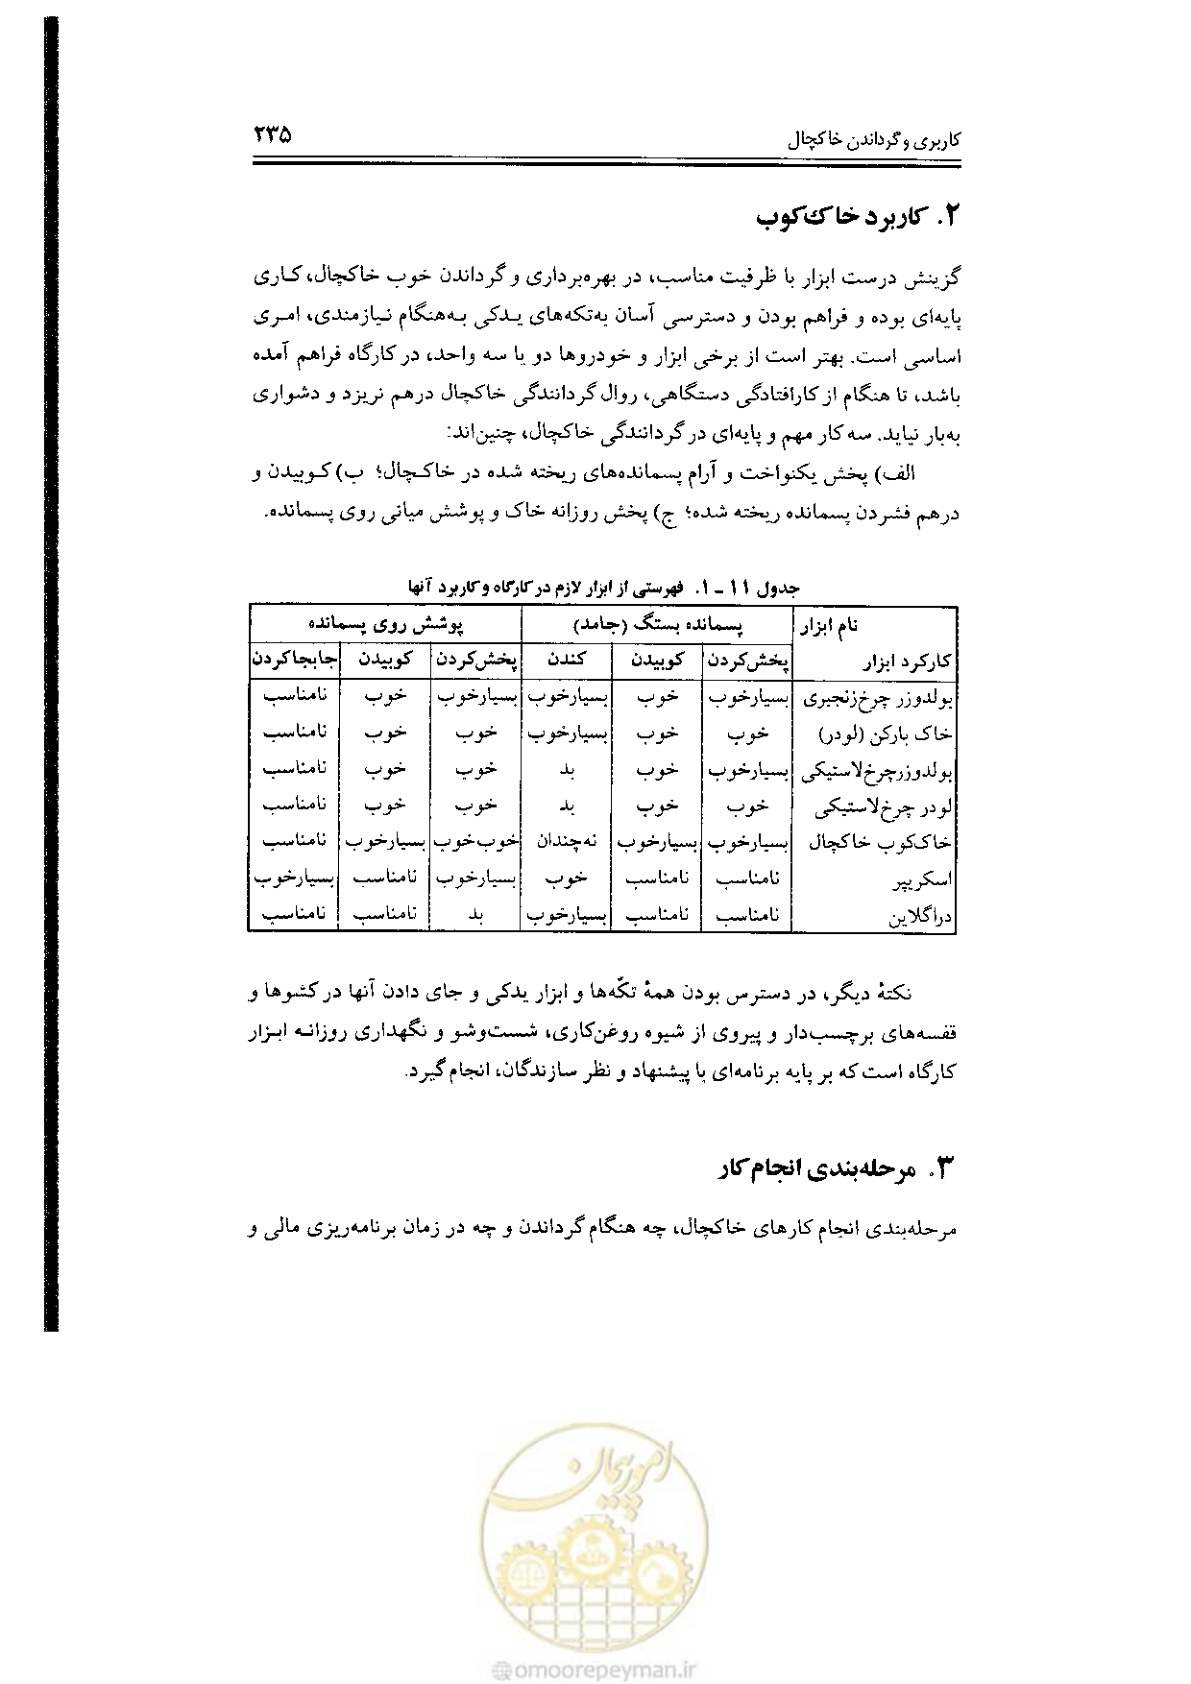 کاربری و گرداندن خاکچال ۲۳۵
۲. کاربرد خاک‌کوب
گزینش درست ابزار با ظرفیت مناسب، در بهره‌برداری و گرداندن خوب خاکچال، کاری
پایه‌ای بوده و فراهم بودن و دسترسی آسان به‌تکه‌های یدکی به‌هنگام نیازمندی، امری
اساسی است. بهتر است از برخی ابزار و خودروها دو یا سه واحد، در کارگاه فراهم آمده
باشد، تا هنگام از کارافتادگی دستگاهی، روال گردانندگی خاکچال درهم نریزد و دشواری
به‌بار نیاید. سه کار مهم و پایه‌ای در گردانندگی خاکچال، چنین‌اند:
الف) پخش یکنواخت و آرام پسمانده‌های ریخته شده در خاکچال؛ ب) کوبیدن و
درهم فشردن پسمانده ریخته شده؛ ج) پخش روزانه خاک و پوشش میانی روی پسمانده.
جدول ۱۱ ـ ۱. فهرستی از ابزار لازم در کارگاه و کاربرد آنها
نام ابزار پسمانده بستگ (جامد) پوشش روی پسمانده
کارکرد ابزار پخش‌کردن کوبیدن کندن پخش‌کردن کوبیدن جابجاکردن
بولدوزر چرخ‌زنجیری بسیارخوب خوب بسیارخوب بسیارخوب خوب نامناسب
خاک بارکن (لودر) خوب خوب بسیارخوب خوب خوب نامناسب
بولدوزرچرخ‌لاستیکی بسیارخوب خوب بد خوب خوب نامناسب
لودر چرخ‌لاستیکی خوب خوب بد خوب خوب نامناسب
خاک‌کوب خاکچال بسیارخوب بسیارخوب نه‌چندان خوب‌خوب بسیارخوب نامناسب
اسکریپر نامناسب نامناسب خوب بسیارخوب نامناسب بسیارخوب
دراگلاین نامناسب نامناسب بسیارخوب بد نامناسب نامناسب
نکتهٔ دیگر، در دسترس بودن همهٔ تکّه‌ها و ابزار یدکی و جای دادن آنها در کشوها و
قفسه‌های برچسب‌دار و پیروی از شیوه روغن‌کاری، شست‌وشو و نگهداری روزانه ابزار
کارگاه است که بر پایه برنامه‌ای با پیشنهاد و نظر سازندگان، انجام گیرد.
۳. مرحله‌بندی انجام کار
مرحله‌بندی انجام کارهای خاکچال، چه هنگام گرداندن و چه در زمان برنامه‌ریزی مالی و
امور پیمان
@omoorepeyman.ir